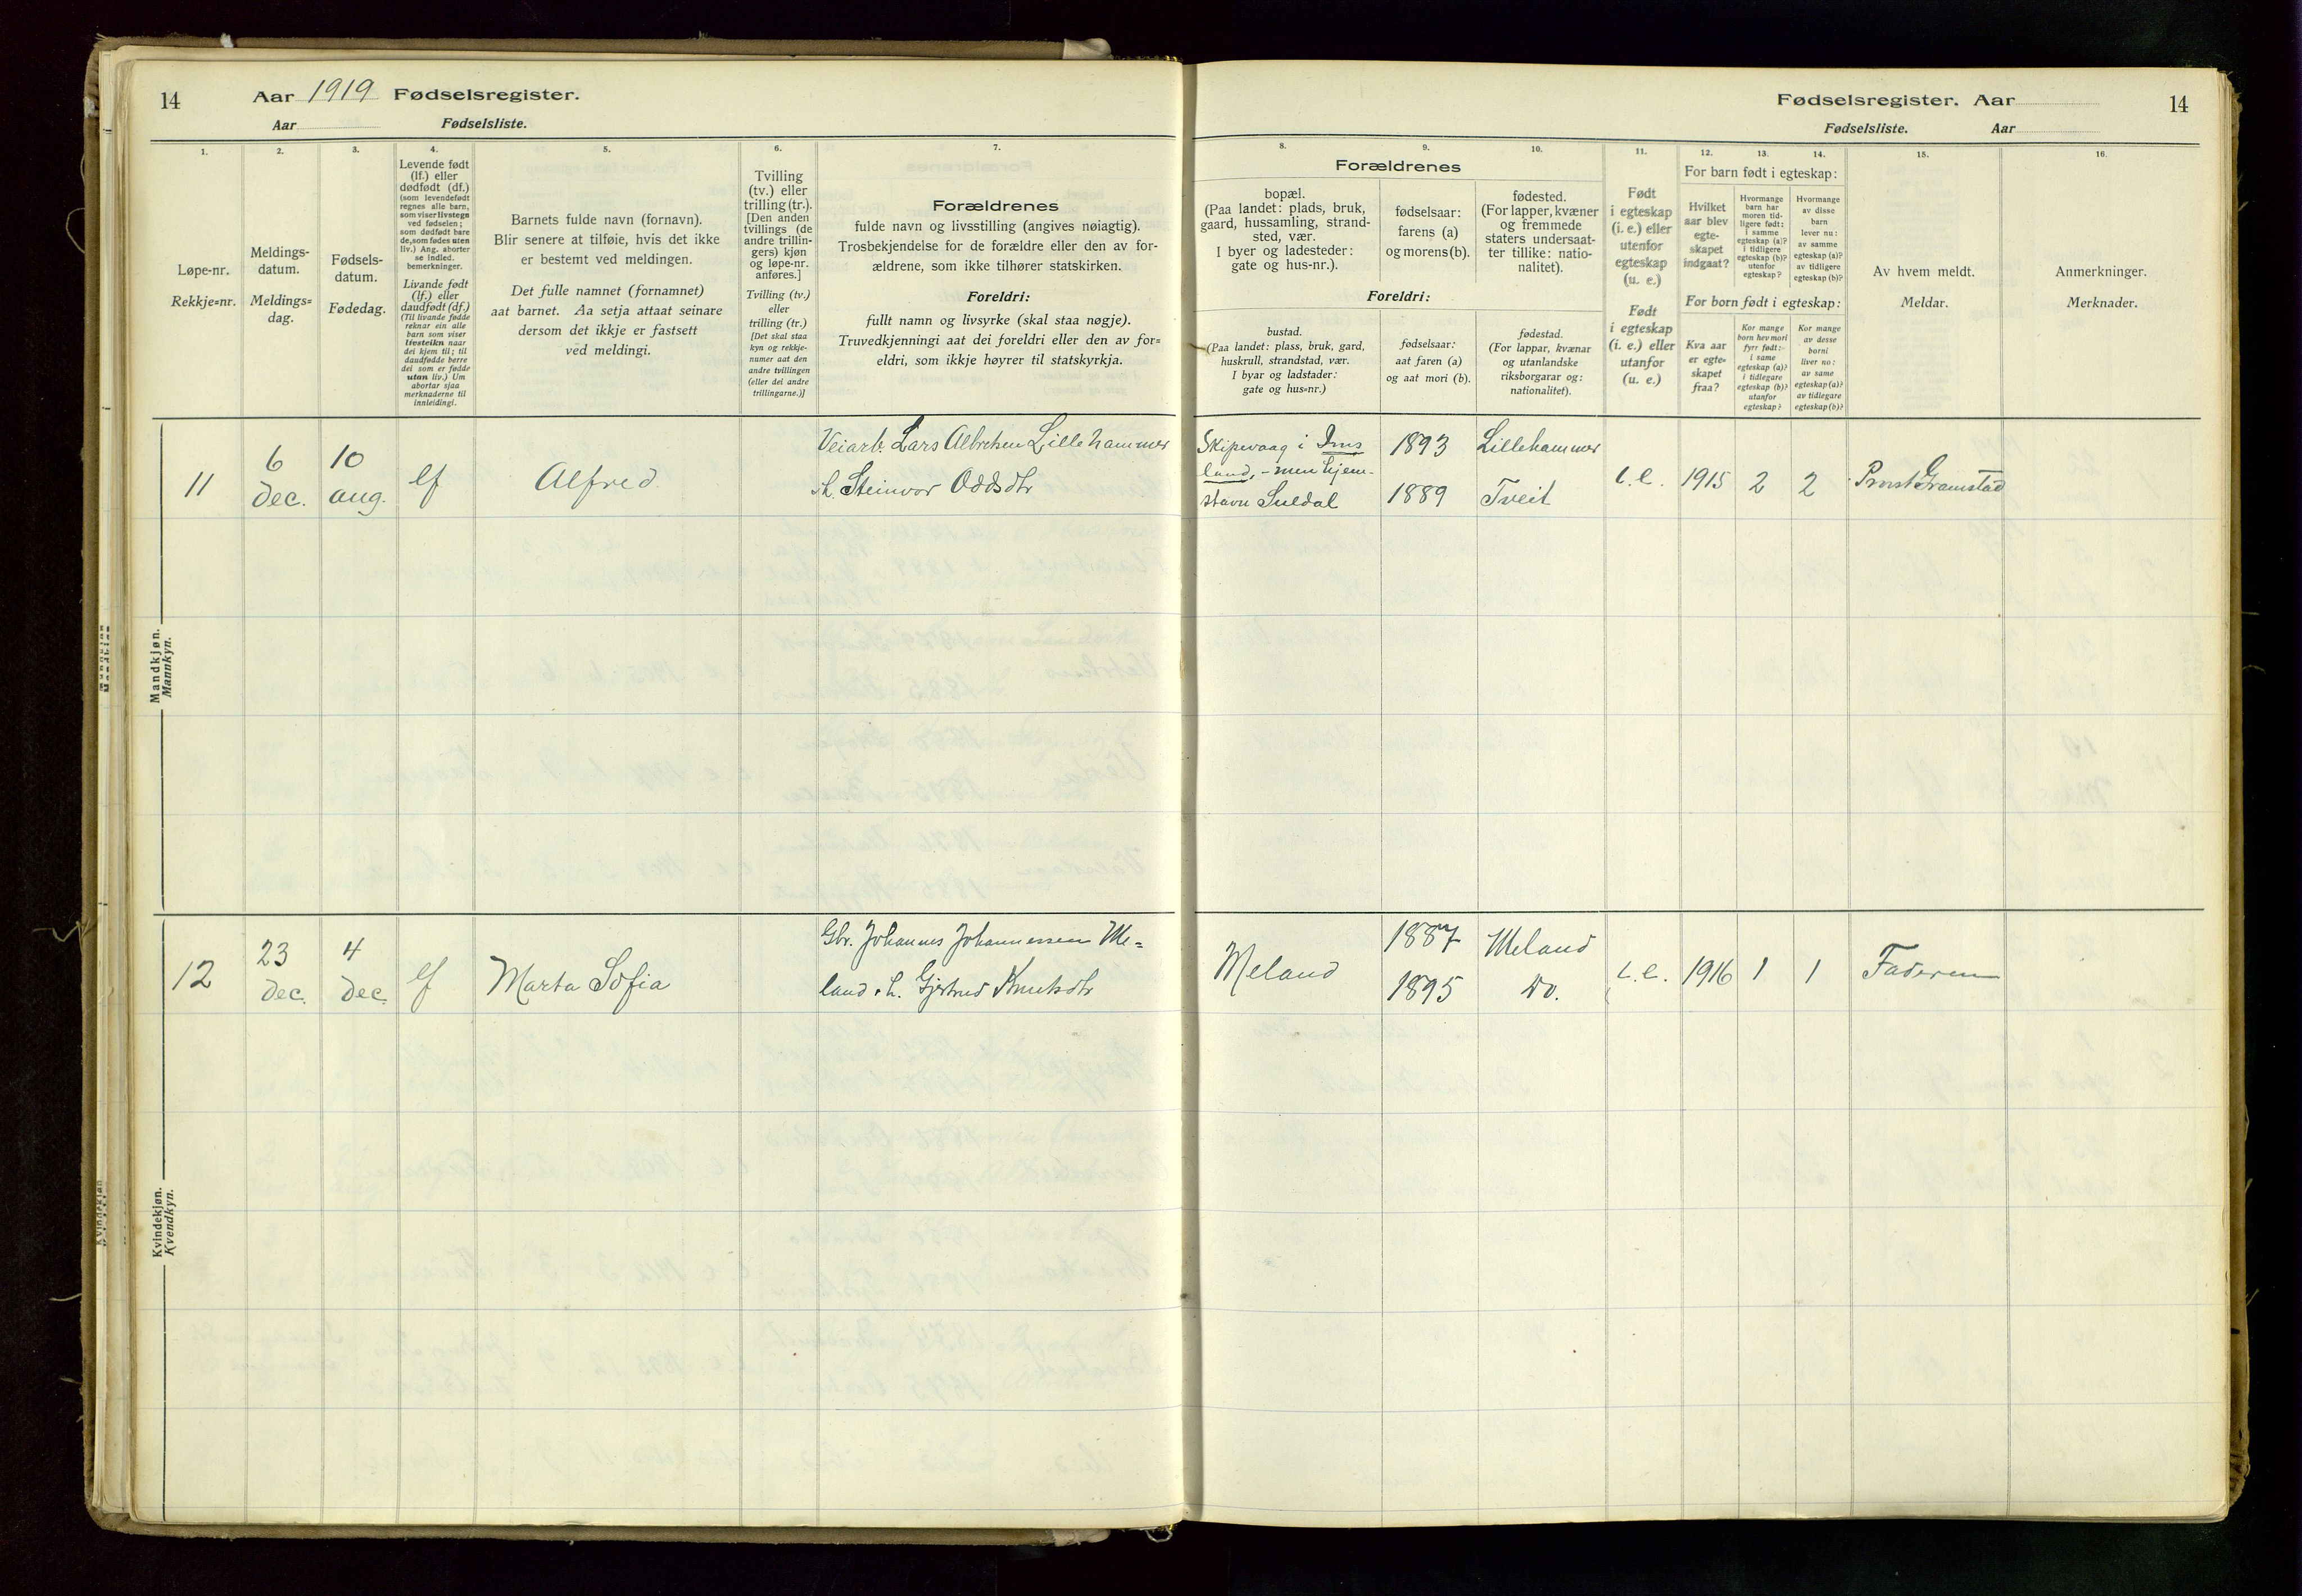 14
Aar 1919 Fødselsregister.
Aar Fødselsliste.
Fødselsregister. Aar
14
Fødselsliste. Aar
1.
Løpe-nr.
Rekkje=nr.
2.
Meldings-
datum.
Meldings=
dag.
3.
Fødsels-
datum.
Fødedag.
4.
Levende født
(lf.) eller
dødfødt (df.)
(som levendefødt
regnes alle barn,
som viser livstegn
ved fødselen;
som dødfødt bare
de, som fødes uten
liv.) Ang. aborter
se indled.
bemerkninger.
Livande født
(lf.) eller
daudfødt (df.)
(Til livande fødde
reknar ein alle
barn som viser
livsteikn naar
dei kjem til; til
daudfødde berre
dei som er fødde
utan liv.) Um
abortar sjaa
merknaderne til
innleidingi.
5.
Barnets fulde navn (fornavn).
Blir senere at tilføie, hvis det ikke
er bestemt ved meldingen.
Det fulle namnet (fornamnet)
aat barnet. Aa setja attaat seinare
dersom det ikkje er fastsett
ved meldingi.
6.
Tvilling
(tv.) eller
trilling (tr.).
[Den anden
tvillings (de
andre trillin-
gers) kjøn
og løpe-nr.
anføres.]
Tvilling (tv.)
eller
trilling (tr.)
[Det skal staa
kyn og rekkje-
numer aat den
andre tvillingen
(eller dei andre
trillingarne.)]
7.
Forældrenes
fulde navn og livsstilling (angives nøiagtig).
Trosbekjendelse for de forældre eller den av for-
ældrene, som ikke tilhører statskirken.
Foreldri:
fullt namn og livsyrke (skal staa nøgje).
Truvedkjenningi aat dei foreldri eller den av for=
eldri, som ikkje høyrer til statskyrkja.
Forældrenes
8.
bopæl.
(Paa landet: plads, bruk,
gaard, hussamling, strand-
sted, vær.
I byer og ladesteder:
gate og hus-nr.).
9.
fødselsaar:
farens (a)
og morens (b).
10.
fødested.
(For lapper, kvæner
og fremmede
staters undersaat-
ter tillike: natio-
nalitet).
Foreldri:
bustad.
(Paa landet: plass, bruk, gard,
huskrull, strandstad, vær.
I byar og ladstader:
gate og hus-nr.)
fødselsaar:
aat faren (a)
og aat mori (b).
fødestad.
(For lappar, kvænar
og utanlandske
riksborgarar og:
nationalitet).
11.
Født
i egteskap
(i. e.) eller
utenfor
egteskap
(u. e.)
Født
i egteskap
(i. e.) eller
utanfor
(u. e.)
For barn født i egteskap:
12.
Hvilket
aar blev
egte-
skapet
indgaat?
13.
Hvormange
barn har
moren tid-
ligere født:
i samme
egteskap (a)?
i tidligere
egteskap (b)?
utenfor
egteskap?
14.
Hvormange
av disse
barn
lever nu:
av samme
egteskap (a)?
av tidligere
egteskap (b)?
For born født i egteskap:
Kva aar
er egte=
skapet
fraa?
Kor mange
born hev mori
fyrr født:
i same
egteskap (a)?
i tidlegare
egteskap (b)?
utanfor
egteskap?
Kor mange
av desse
borni
liver no:
av same
egteskap (a)?
av tidlegare
egteskap (b)?
15.
Av hvem meldt.
Meldar.
16.
Anmerkninger.
Merknader.
Mandkjøn.
Mannkyn.
11
6
Dec.
10
aug.
lf
Alfred
Veiarb. Lars Albrehen Lillehammer
. h. Steinvor Oddsdtr
Skipevaag i Ims
land, - men hjem-
stavn Suldal
1893
1889
Lillehammer
Tveit
i.e.
1915
2
2
Prost Gramstad
Kvindekjøn.
Kvendkyn.
12
23
Dec.
4
Dec.
lf
Marta Sofia
Gbr. Johannes Johannessen Me=
land . h. Gjertrud Knutsdtr
Meland
1887
1895
Meland
Do.
i.e.
1916
1
1
Faderen